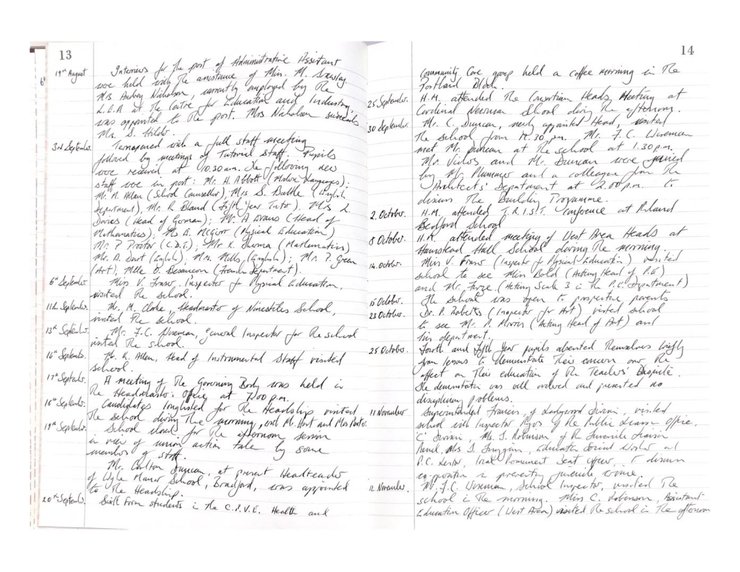 13
19th August Interviews for the post of Administrative Assistant
were held with the assistance of Mrs. M.
Mrs Audrey Nicholson, currently employed by the
L.E.A. at the Centre for Education and Industry,
was appointed to the post. Mrs Nicholson succeeds
Mrs S. Hibbs.
3rd September. Term opened with a full staff meeting
followed by meetings of Tutorial Staff. Pupils
were received at 10.30 am. The following new
staff were in post: Mr H. Abbott (Modern Languages);
Mr. A. Allen (School Counsellor); Mrs S. (English
Department); Mr. R. Bland (Fifth Year Tutor). Mrs L.
Davies (Head of German); Mr A Evans (Head of
Mathematics); Ms B. McGivor (Physical Education)
Mr. P. Proctor (C.D.T.); Mr. K. Sharma (Mathematics)
Mr. A. Dart (English); Mrs Mills (English); Mr. T. Green
(Art); Mlle O. Beaumann (French Department).
6th September. Miss V. Fraser, Inspector of Physical Education,
visited the school.
11th September. Mr. M. Clarke, Headmaster of Ninestiles School,
visited the school.
13th September. Mr. F.C. Wiseman, General Inspector for the school
visited the school.
16th September. Mr. R. Allen, Head of Instrumental Staff visited
school.
17th September. A meeting of the Governing Body was held in
the Headmaster's office at 7.00 p.m.
18th September. Candidates longlisted for the Headship visited
the school during the morning, met Mr. Dart and Mrs
19th September. School closed for the afternoon session
in view of union action taken by some
members of staff.
Mr. Carlton Duncan, at present Headteacher
of Wyke Manor School, Bradford, was appointed
to the Headship.
20th September. Sixth Form students in the C.P.V.E. Health and
14
Community Care group held a coffee morning in the
Portland Block.
25 September. H.M. attended the Consortium Heads Meeting at
Cardinal Newman School during the afternoon.
30 September. Mr. C. Duncan, newly appointed Head, visited
the school from 12.30 p.m. Mr. F.C. Wiseman
met Mr. Duncan at the school at 1.30 p.m.
Mr. and Mr. Duncan were joined
by Mr. and a colleague from the
Architects' Department at 2.00 p.m. to
discuss the Building Programme.
2. October. H.M. attended T.R.I.S.T. Conference at Roland
Bedford School
8 October. H.M. attended meeting of West Area Heads at
Hamstead Hall School during the morning.
14 October. Miss V. Fraser (Inspector of Physical Education) visited
school to see Miss Bold (Acting Head of P.E.)
and Mr. (Acting Scale 3 in the P.E. Department)
16 October. The school was open to prospective parents
23 October. Dr. P. Roberts (Inspector for Art) visited school
to see Mr. P. (Acting Head of Art) and
his department.
25 October. Fourth and Fifth Year pupils absented themselves briefly
from lessons to demonstrate their concern over the
effect on their education of the Teachers' Dispute.
The demonstration was well ordered and presented no
disciplinary problems.
11 November Superintendent Francis of Ladywood Division, visited
school with Inspector of the Public Liaison Office,
'C' Division, Ms. J. Robinson of the Juvenile Liaison
Panel, Mrs S. Education Social Worker and
P.C. Lester, local Permanent Beat Officer, to discuss
co-operation in preventing juvenile crime.
12 November. Mr. F.C. Wiseman, School Inspector, visited the
school in the morning. Miss C. Robinson, Assistant
Education Officer (West Area) visited the school in the afternoon